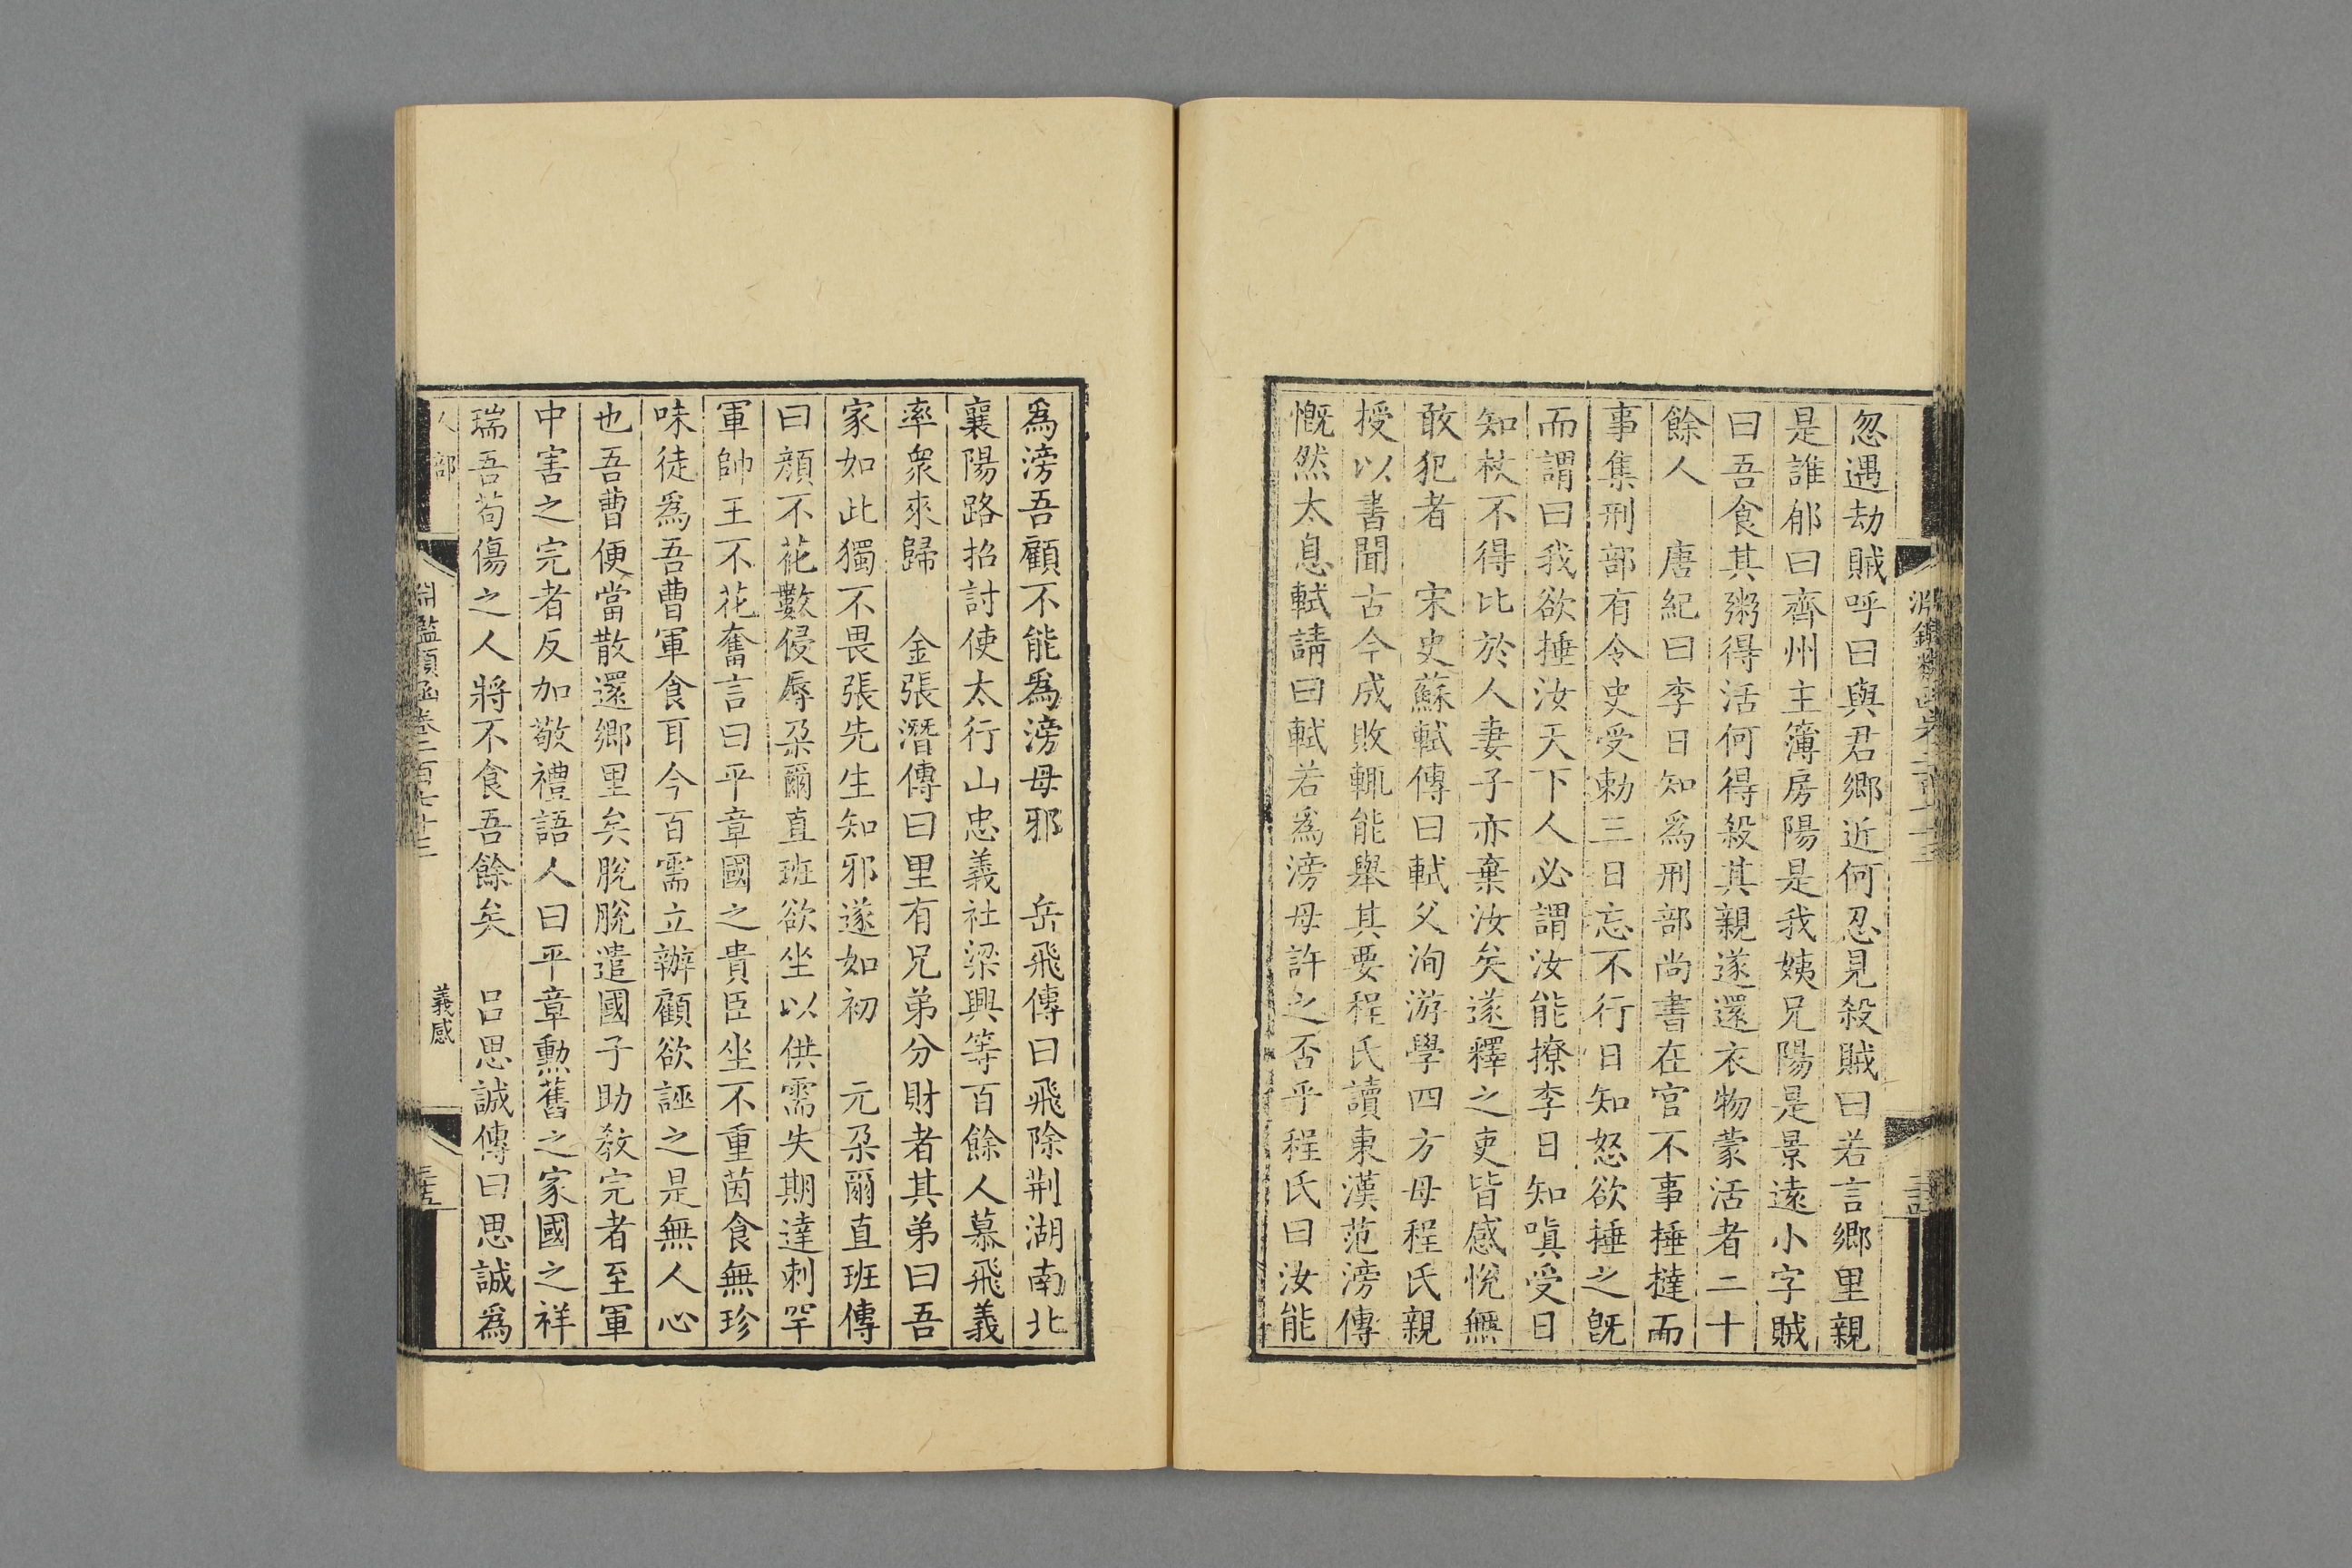 忽遇劫賊呼曰與君鄉近何忍見殺賊曰若言鄉里親
是誰郁曰齊州主簿房陽是我姨兄陽是景遠小字賊
曰吾食其粥得活何得殺其親遂還衣物蒙活者二十
餘人　唐紀曰李日知爲刑部尚書在官不事捶撻而
事集刑部有令史受勅三日忘不行日知怒欲捶之旣
而謂曰我欲捶汝天下人必謂汝能撩李日知嗔受日
知杖不得比於人妻子亦棄汝矣遂釋之吏皆感悅無
敢犯者　宋史蘇軾傳曰軾父洵游學四方母程氏親
授以書聞古今成敗輒能舉其要程氏讀東漢范滂傳
慨然太息軾請曰軾若爲滂母許之否乎程氏曰汝能
爲滂吾顧不能爲滂母邪　岳飛傳曰飛除荆湖南北
襄陽路招討使太行山忠義社梁興等百餘人慕飛義
率衆來歸　金張潛傳曰里有兄弟分財者其弟曰吾
家如此獨不畏張先生知邪遂如初　元朶爾直班傳
曰顔不花數侵辱朶爾直班欲坐以供需失期達刺罕
軍帥王不花奮言曰平章國之貴臣坐不重茵食無珍
味徒爲吾曹軍食耳今百需立辦顧欲誣之是無人心
也吾曹便當散還鄉里矣脫脫遣國子助敎完者至軍
中害之完者反加敬禮語人曰平章勲舊之家國之祥
瑞吾苟傷之人將不食吾餘矣　呂思誠傳曰思誠爲
人部
淵鑑類函卷二百七十三
義感